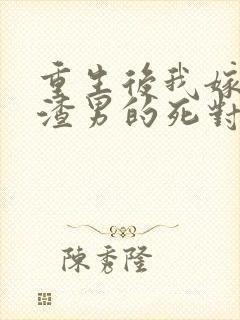 重生後我嫁
渣男的死對
陳秀隆